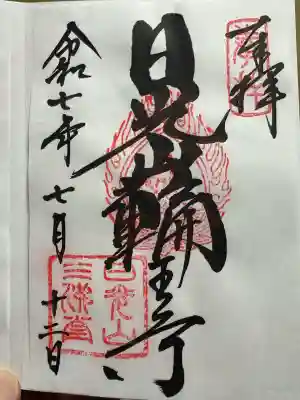 奉拝
日光山輪王寺
令和七年七月十二日
日光山
三佛堂